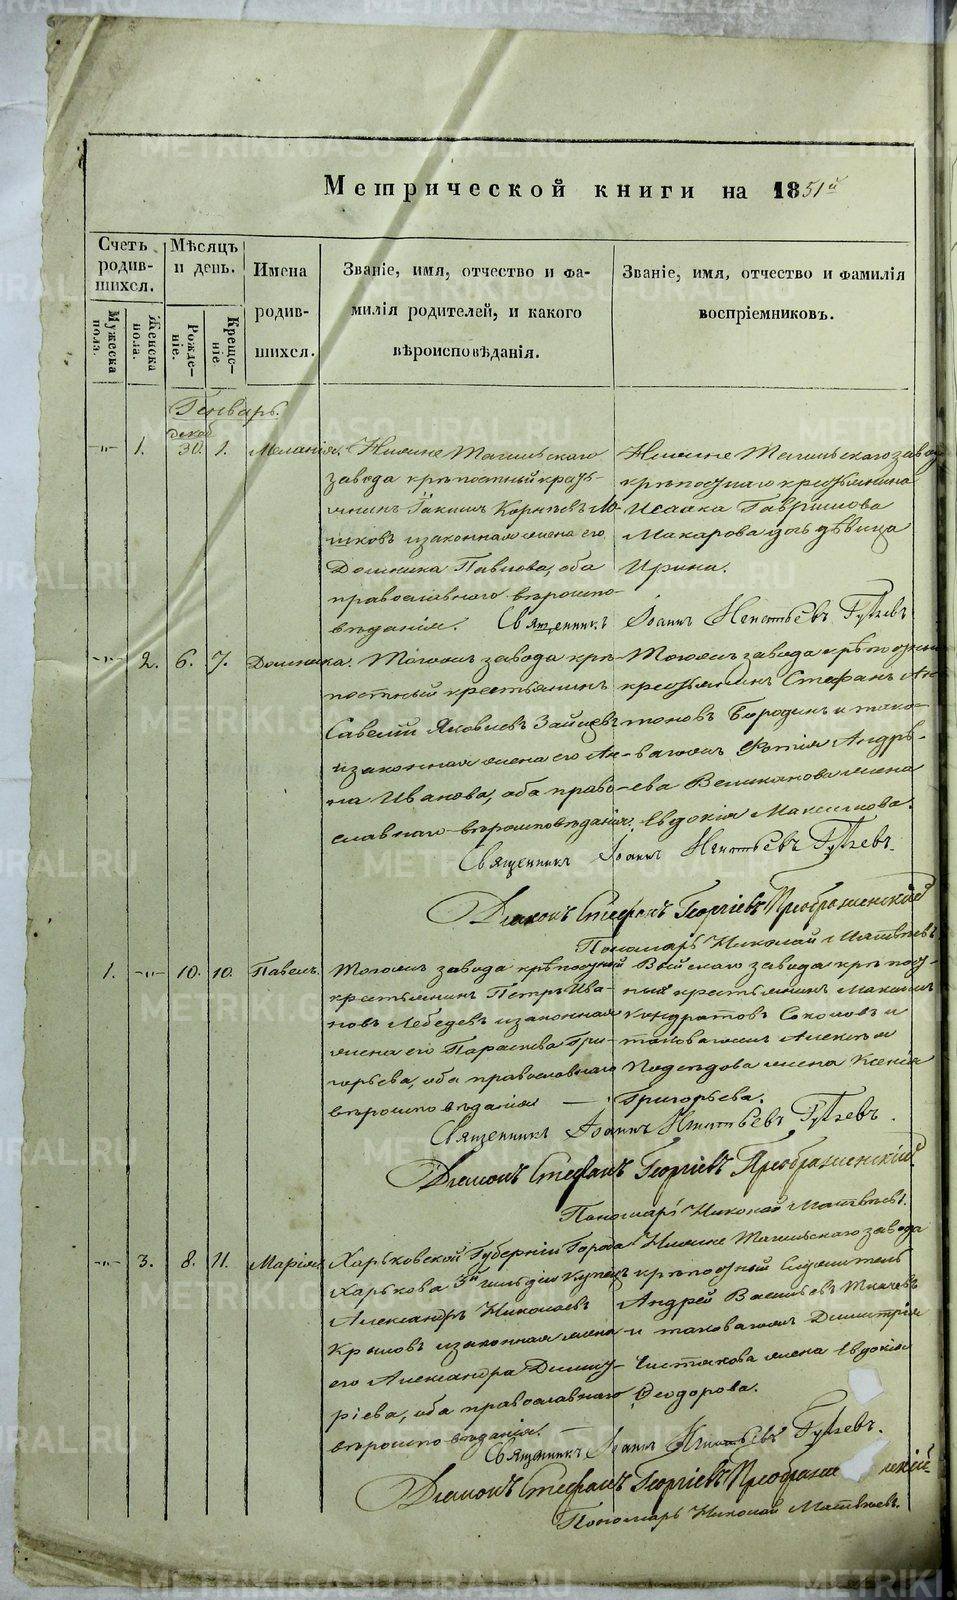 Метрической книги на 1851й
Счетъ родив-шихся.
Мужеска пола.
Женска пола.
Мѣсяцъ и день.
Рожде-ніе.
Креще-ніе.
Имена родив-шихся.
Званіе, имя, отчество и фа-
милія родителей, и какого
вѣроисповѣданія.
Званіе, имя, отчество и фамилія
воспріемниковъ.
Генварь.
декаб
-"- 1. 30. 1. Меланія.
Нижне Тагильскаго
завода крѣпостный кресть-
янинъ Іакимъ Корнѣевъ
изаконная жена его
Домника Павлова, оба
православнаго вѣроиспо-
вѣданія.
Нижне Тагильскаго завод
крѣпостнаго крестьянина
Исаака Гаврилова
Макарова дочь дѣвица
Ирина.
Священникъ Іоаннъ Игнатьевъ
-"- 2. 6. 7. Домника.
Тогожъ завода крѣ-
постный крестьянинъ
Савелій Яковлевъ Зайцевъ
изаконная жена его Ан-
на Иванова, оба право-
славнаго вѣроисповѣданія.
Тогожъ завода крѣпостный
крестьянинъ Стефанъ Ан-
тоновъ Бородинъ и тако-
вагожъ Фотія Андрѣ-
ева Великанова жена
Евдокія Максимова.
Священникъ Іоаннъ Игнатьевъ
Діаконъ Стефанъ Георгіевъ Преображенскій
Пономарь Николай Матвѣевъ
1. -"- 10. 10. Павелъ.
Тогожъ завода крѣпостный
крестьянинъ Петръ Ива-
новъ Лебедевъ изаконная
жена его Параскева Гри-
горьева, оба православнаго
вѣроисповѣданія
Выйскаго завода крѣпост-
ный крестьянинъ Максимъ
Кондратовъ Соколовъ и
таковагожъ Алексѣя
жена Ксенія
Григорьева.
Священникъ Іоаннъ Игнатьевъ
Діаконъ Стефанъ Георгіевъ Преображенскій
Пономарь Николай Матвѣевъ.
-"- 3. 8. 11. Марія.
Харьковской Губерніи Города
Харькова 3й гильдіи Купецъ
Александръ Николаевъ
Крыловъ изаконная жена
его Александра Димит-
ріева, оба православнаго
вѣроисповѣданія.
Нижне Тагильскаго завода
крѣпостный Служитель
Андрей Васильевъ Ткачевъ
и таковагожъ Димитрія
Чистякова жена Евдокія
Ѳеодорова.
Священникъ Іоаннъ Игнатьевъ
Діаконъ Стефанъ Георгіевъ
Пономарь Николай Матвѣевъ.
METRIKI.GASO-URAL.RU